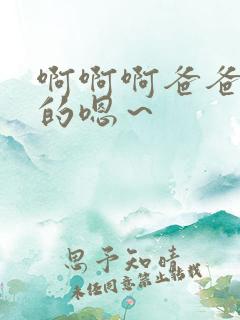 啊啊啊爸爸
的嗯～
思予知晴
未经同意禁止转载